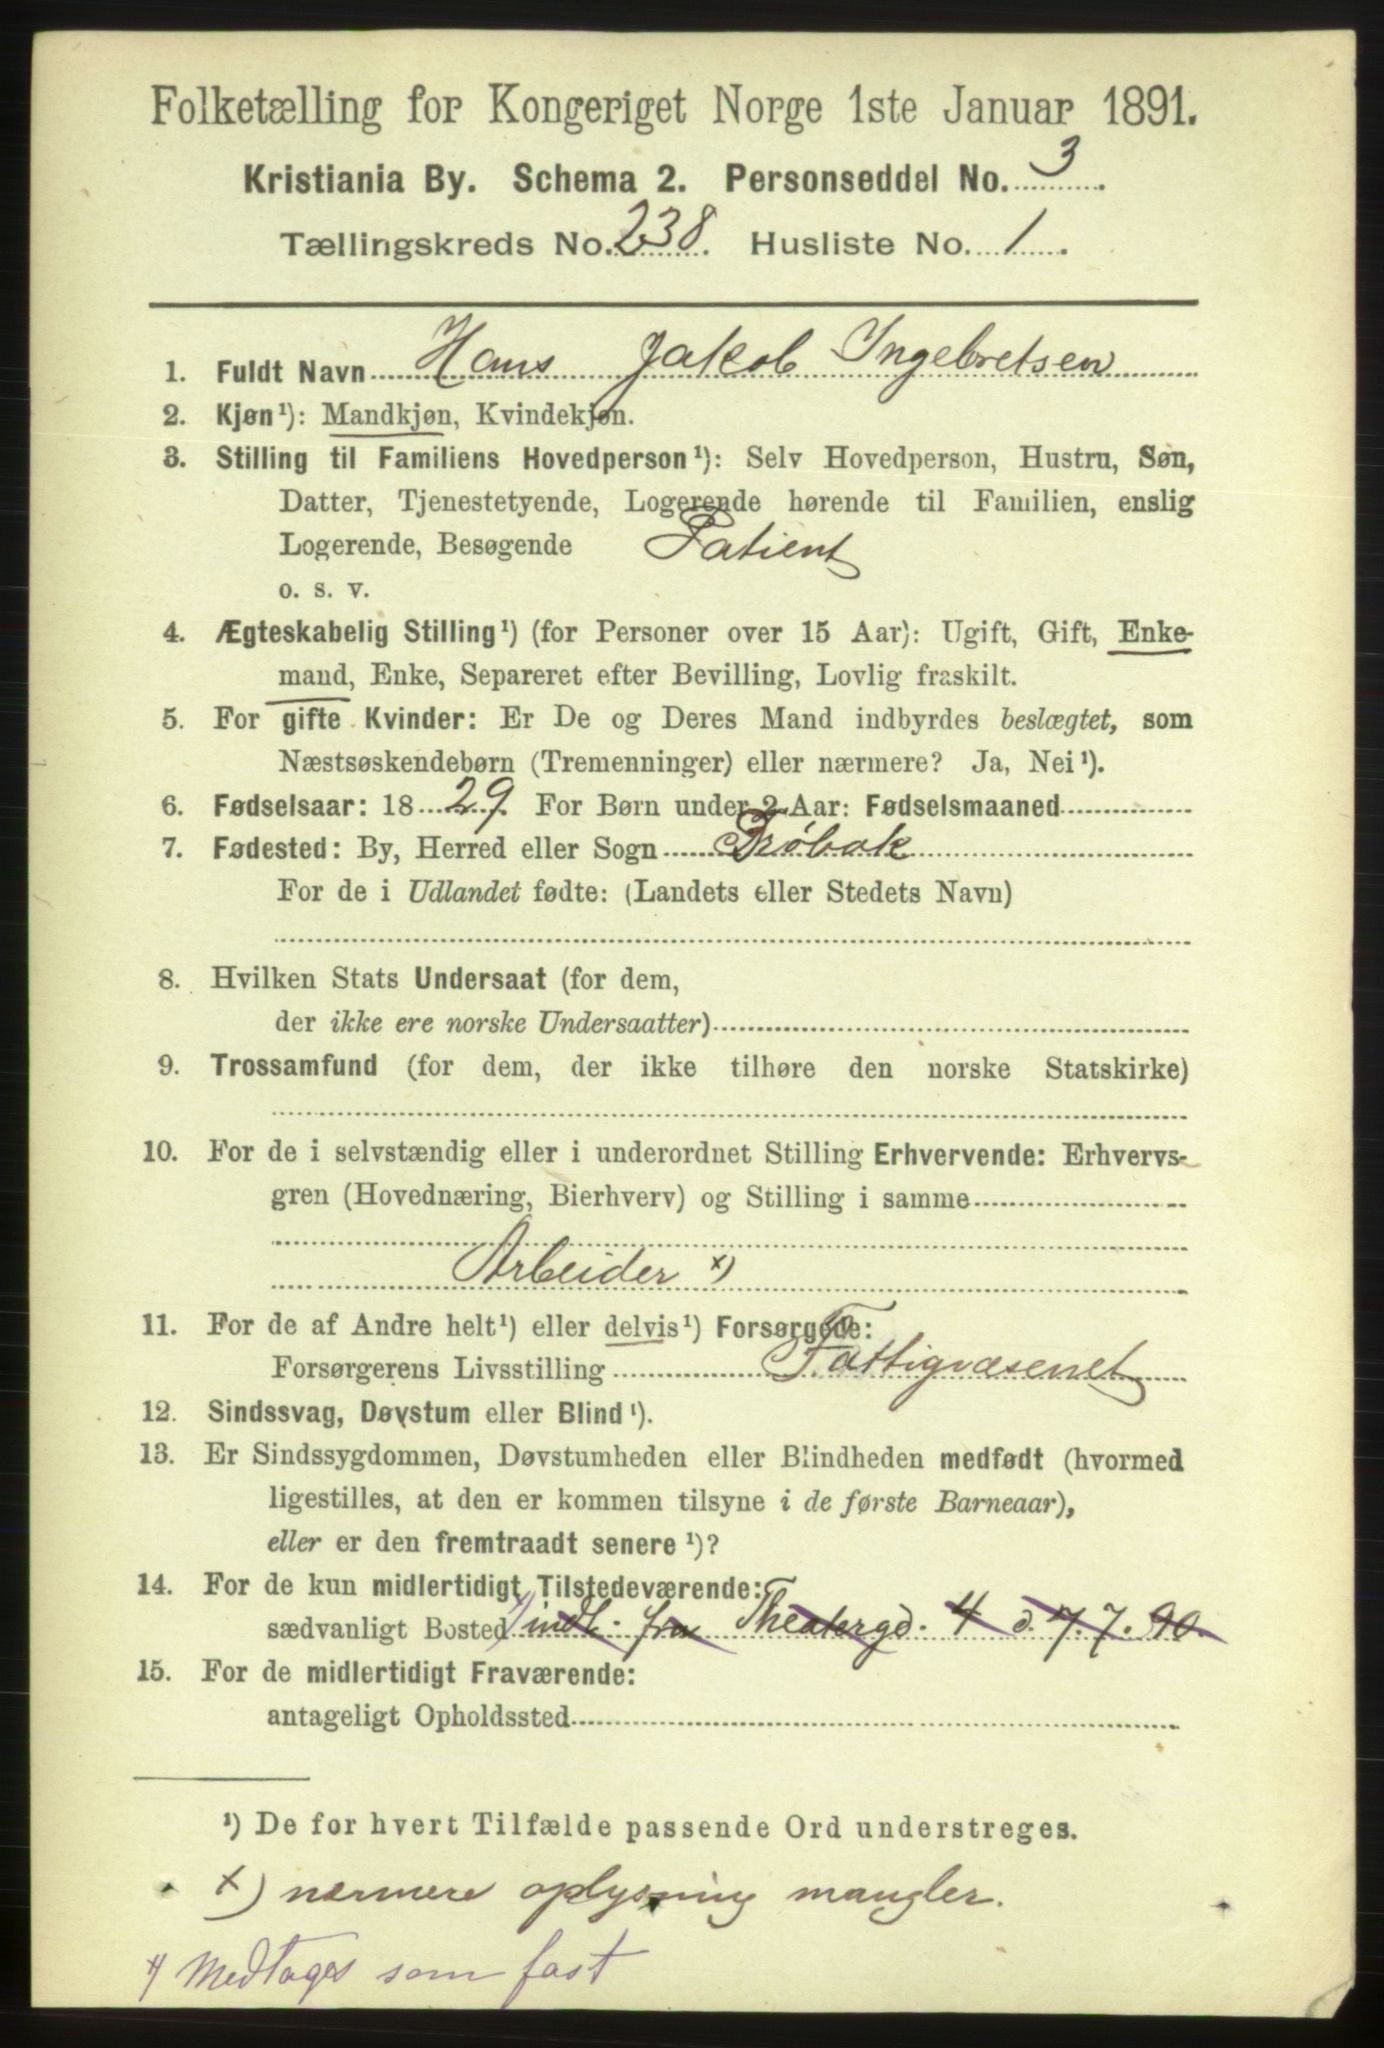 Folketælling for Kongeriget Norge 1ste Januar 1891.
Kristiania By. Schema 2. Personseddel No. 3.
Tællingskreds No. 238. Husliste No. 1.
1. Fuldt Navn Hans Jakob Ingebretsen
2. Kjøn¹): Mandkjøn, Kvindekjøn.
3. Stilling til Familiens Hovedperson¹): Selv Hovedperson, Hustru, Søn,
Datter, Tjenestetyende, Logerende hørende til Familien, enslig
Logerende, Besøgende Patient
o. s. v.
4. Ægteskabelig Stilling¹) (for Personer over 15 Aar): Ugift, Gift, Enke-
mand, Enke, Separeret efter Bevilling, Lovlig fraskilt.
5. For gifte Kvinder: Er De og Deres Mand indbyrdes beslægtet, som
Næstsøskendebørn (Tremenninger) eller nærmere? Ja, Nei¹).
6. Fødselsaar: 18 29. For Børn under 2 Aar: Fødselsmaaned
7. Fødested: By, Herred eller Sogn Drøbak
For de i Udlandet fødte: (Landets eller Stedets Navn)
8. Hvilken Stats Undersaat (for dem,
der ikke ere norske Undersaatter)
9. Trossamfund (for dem, der ikke tilhøre den norske Statskirke)
10. For de i selvstændig eller i underordnet Stilling Erhvervende: Erhvervs-
gren (Hovednæring, Bierhverv) og Stilling i samme
Arbeider x)
11. For de af Andre helt¹) eller delvis¹) Forsørgede:
Forsørgerens Livsstilling Fattigvæsenet
12. Sindssvag, Døvstum eller Blind¹).
13. Er Sindssygdommen, Døvstumheden eller Blindheden medfødt (hvormed
ligestilles, at den er kommen tilsyne i de første Barneaar),
eller er den fremtraadt senere¹)?
14. For de kun midlertidigt Tilstedeværende:
sædvanligt Bosted indl. fra Theatergd. 4 d. 7. 7. 90.
15. For de midlertidigt Fraværende:
antageligt Opholdssted
¹) De for hvert Tilfælde passende Ord understreges.
x) nærmere oplysning mangler.
Medtages som fast